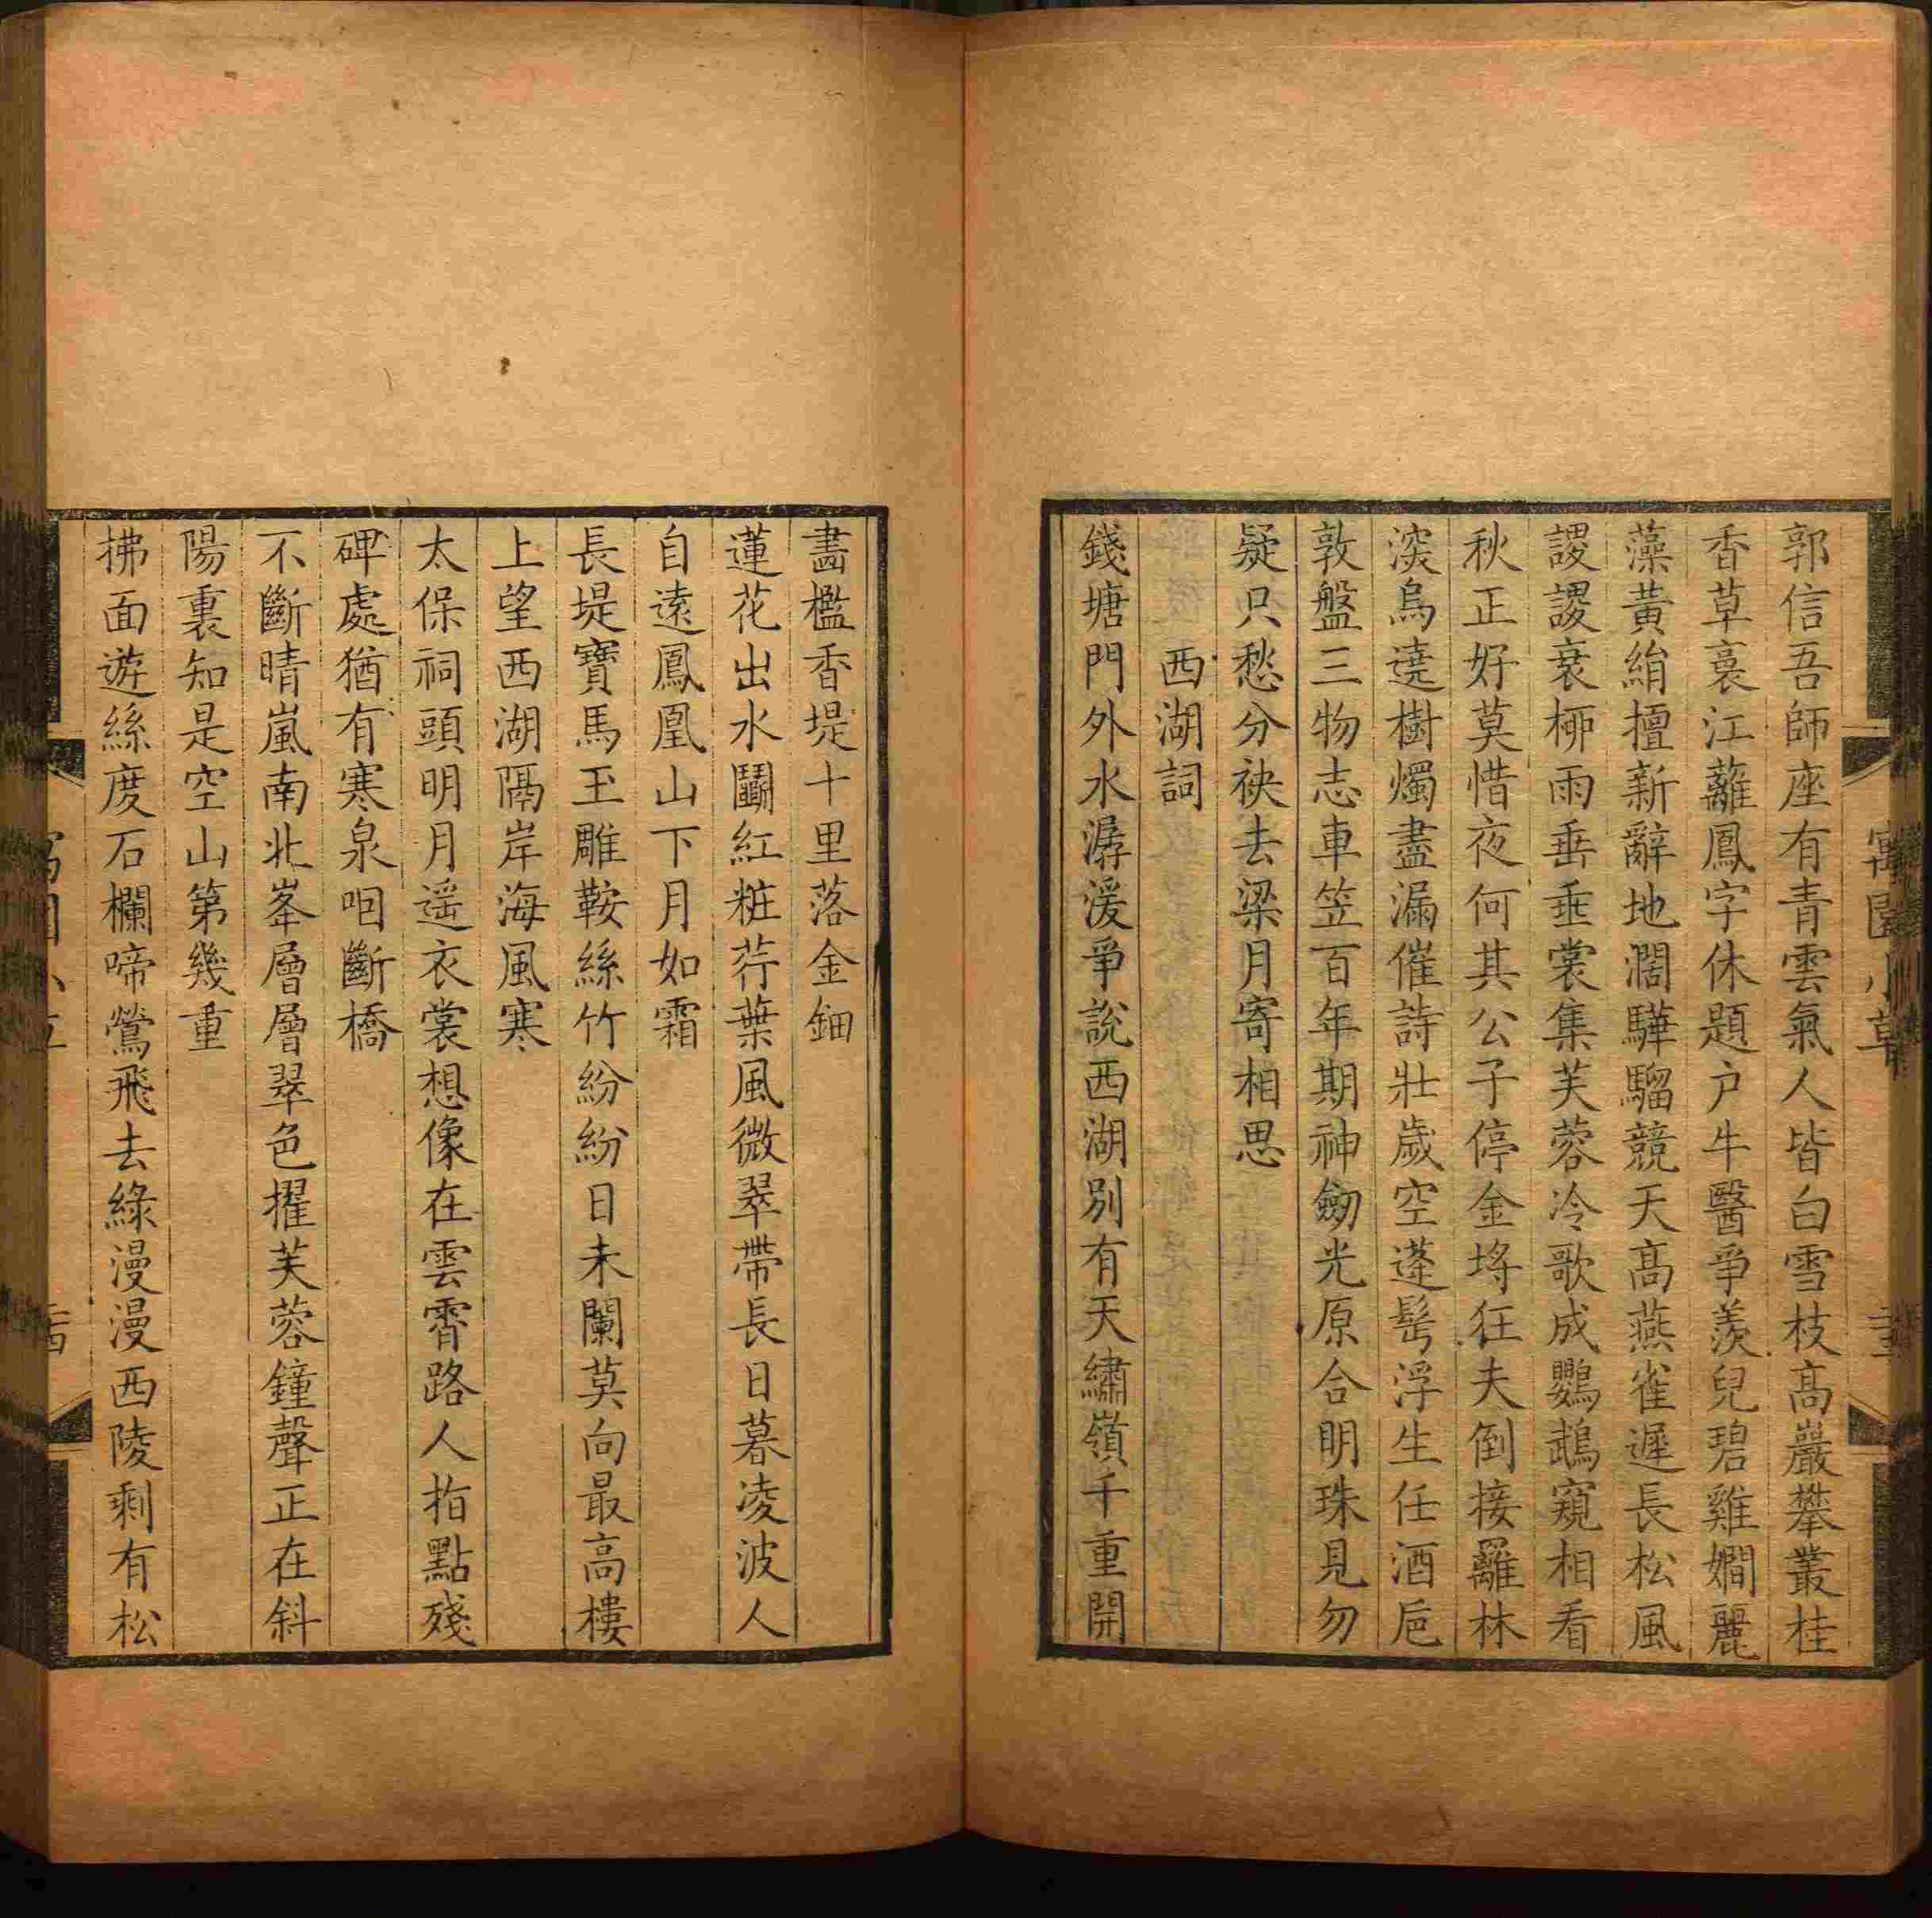 郭信吾師座有青雲氣人皆白雪枝高巖攀叢桂
香草裛江蘺鳳字休題户牛醫爭羨兒碧雞嫺麗
藻黃絹擅新辭地濶驊騮競天高燕雀遲長松風
謖謖衰桺雨垂垂裳集芙蓉冷歌成鸚鵡窺相看
秋正好莫惜夜何其公子停金埓狂夫倒接䍦林
深烏遶樹燭盡漏催詩壯歲空蓬髩浮生任酒巵
敦盤三物志車笠百年期神劒光原合明珠見勿
疑只愁分袂去梁月寄相思
西湖詞
錢塘門外水潺湲爭說西湖別有天繡嶺千重開
畵檻香堤十里落金鈿
蓮花出水鬭紅粧荇葉風微翠帶長日暮凌波人
自遠鳳凰山下月如霜
長堤寶馬玉雕鞍絲竹紛紛日未闌莫向最高樓
上望西湖隔岸海風寒
太保祠頭明月遥衣裳想像在雲霄路人指點殘
碑處猶有寒泉咽斷橋
不斷晴嵐南北峯層層翠色擢芙蓉鐘聲正在斜
陽裏知是空山第幾重
拂面遊絲度石欄啼鶯飛去綠漫漫西陵剩有松
寓園小草